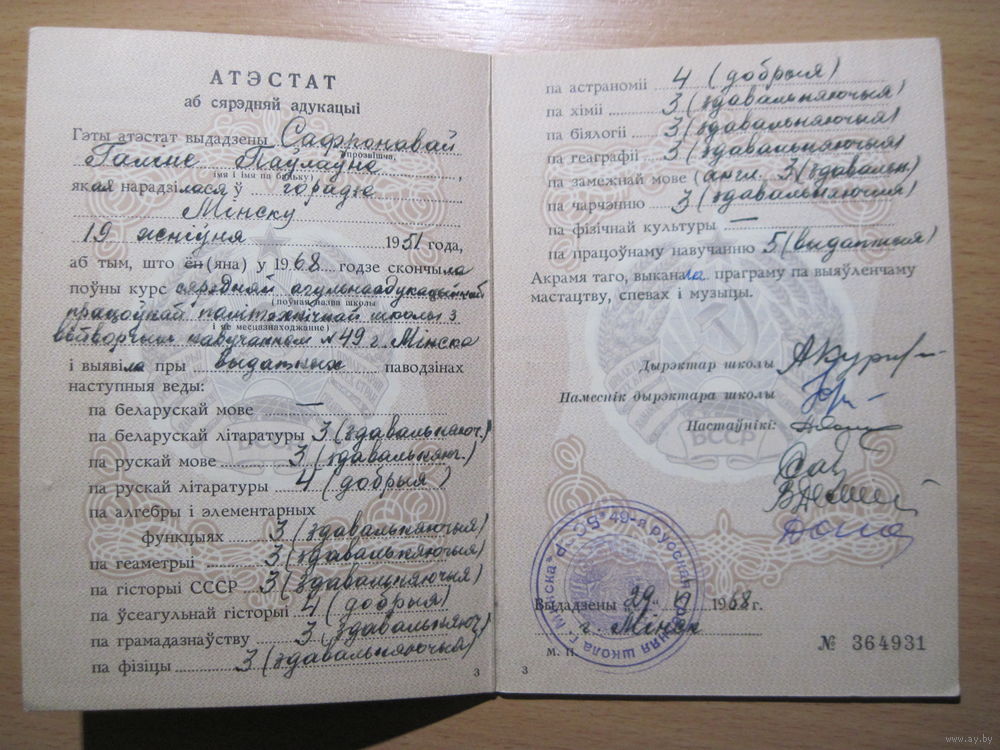 АТЭСТАТ
аб сярэдняй адукацыі
Гэты атэстат выдадзены Сафронавай
(прозвішча,
Галіне Паўлаўне,
імя і імя па бацьку)
якая нарадзілася ў горадзе
Мінску
19 жніўня 1951 года,
аб тым, што ён (яна) у 1968 годзе скончыла
поўны курс сярэдняй агульнаадукацыйнай
(поўная назва школы
працоўнай політэхнічнай школы з
і яе месцазнаходжанне)
вытворчым навучаннем №49 г. Мінска
і выявіла пры выдатных паводзінах
наступныя веды:
па беларускай мове —
па беларускай літаратуры 3 (здавальняюч.)
па рускай мове 3 (здавальняюч.)
па рускай літаратуры 4 (добрыя)
па алгебры і элементарных
функцыях 3 (здавальняючыя)
па геаметрыі 3 (здавальняючыя)
па гісторыі СССР 3 (здавальняючыя)
па ўсеагульнай гісторыі 4 (добрыя)
па грамадазнаўству 3 (здавальняюч.)
па фізіцы 3 (здавальняючыя)
3
па астраноміі 4 (добрыя)
па хіміі 3 (здавальняючыя)
па біялогіі 3 (здавальняючыя)
па геаграфіі 3 (здавальняючыя)
па замежнай мове (англ. 3 (здавальн.)
па чарчэнню 3 (здавальняючыя)
па фізічнай культуры —
па працоўнаму навучанню 5 (выдатныя)
Акрамя таго, выканала праграму па выяўленчаму
мастацтву, спевах і музыцы.
Дырэктар школы
Намеснік дырэктара школы
Настаўнікі:
БССР
49-я русская школа г. Минска
Выдадзены 29 1968 г.
г. Мінск
М. П.
№ 364931
3
www.ay.by